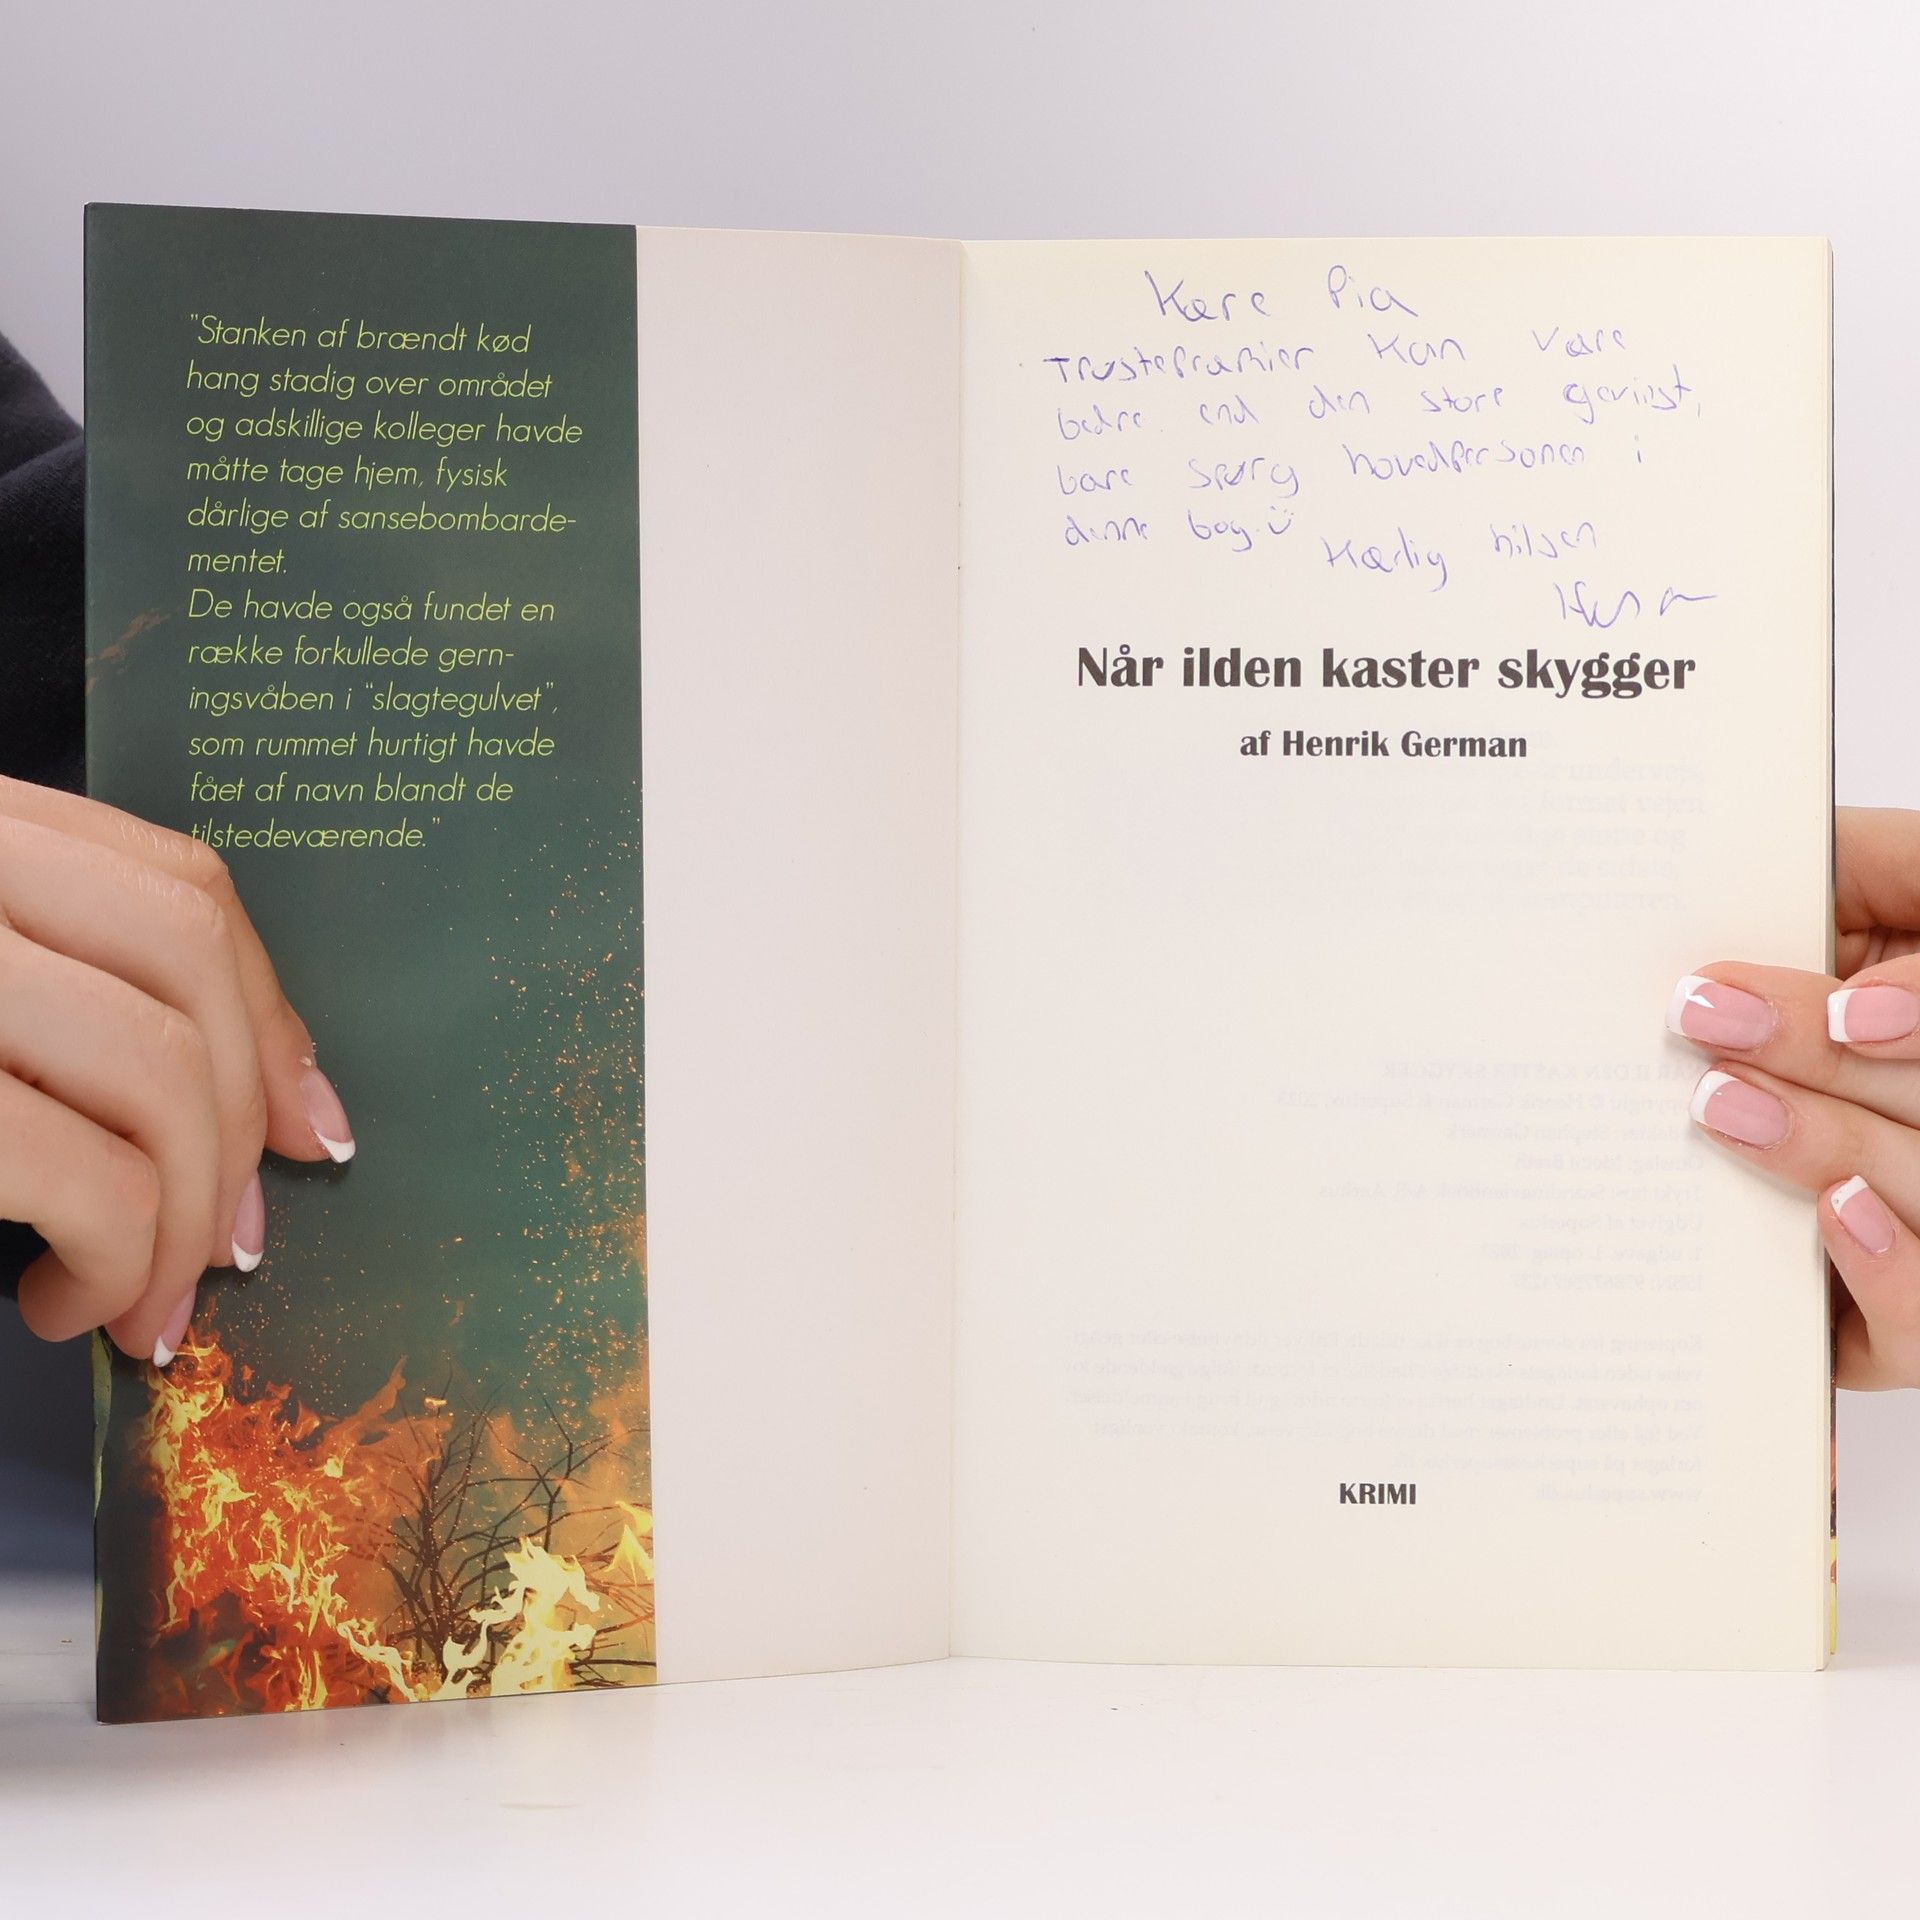 "Stanken af brændt kød
hang stadig over området
og adskillige kolleger havde
måtte tage hjem, fysisk
dårlige af sansebombarde-
mentet.
De havde også fundet en
række forkullede gern-
ingsvåben i "slagtegulvet",
som rummet hurtigt havde
fået af navn blandt de
tilstedeværende."
Kære Pia
Trøstepræmier kan være
bedre end den store gevinst,
bare spørg hovedpersonen i
denne bog.
Kærlig hilsen
Når ilden kaster skygger
af Henrik German
KRIMI